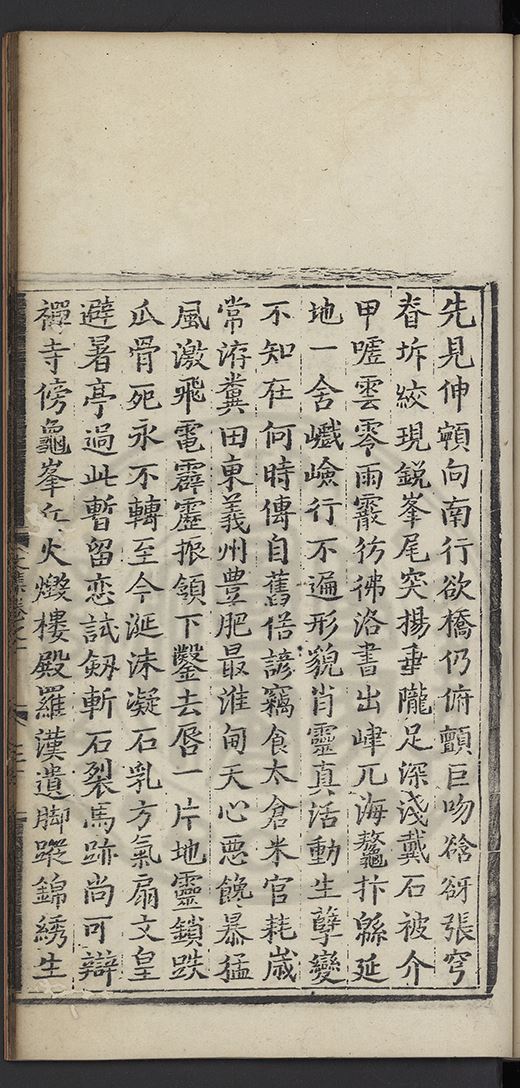 先見伸頓向南行欲橋仍俯顫巨吻谽谺張穹
脊坼紋現銳峯尾突揚垂隴足深淺戴石被介
甲噓雲零雨霰彷彿洛書出峍兀海鼇抃緜延
地一舍巇嶮行不遍形貌肖靈真活動生孽變
不知在何時傳自舊俗諺竊食太倉米官耗歲
常洊糞田東義州豊肥最淮甸天心惡饞暴猛
風激飛電霹靂振頷下鑿去唇一片地靈鎖跌
瓜骨死永不轉至今涎沫凝石乳方氣扇文皇
避暑亭過此暫留恋試劔斬石裂馬跡尚可辯
禪寺傍龜峯兵火燬樓殿羅漢遺脚蹤錦綉生